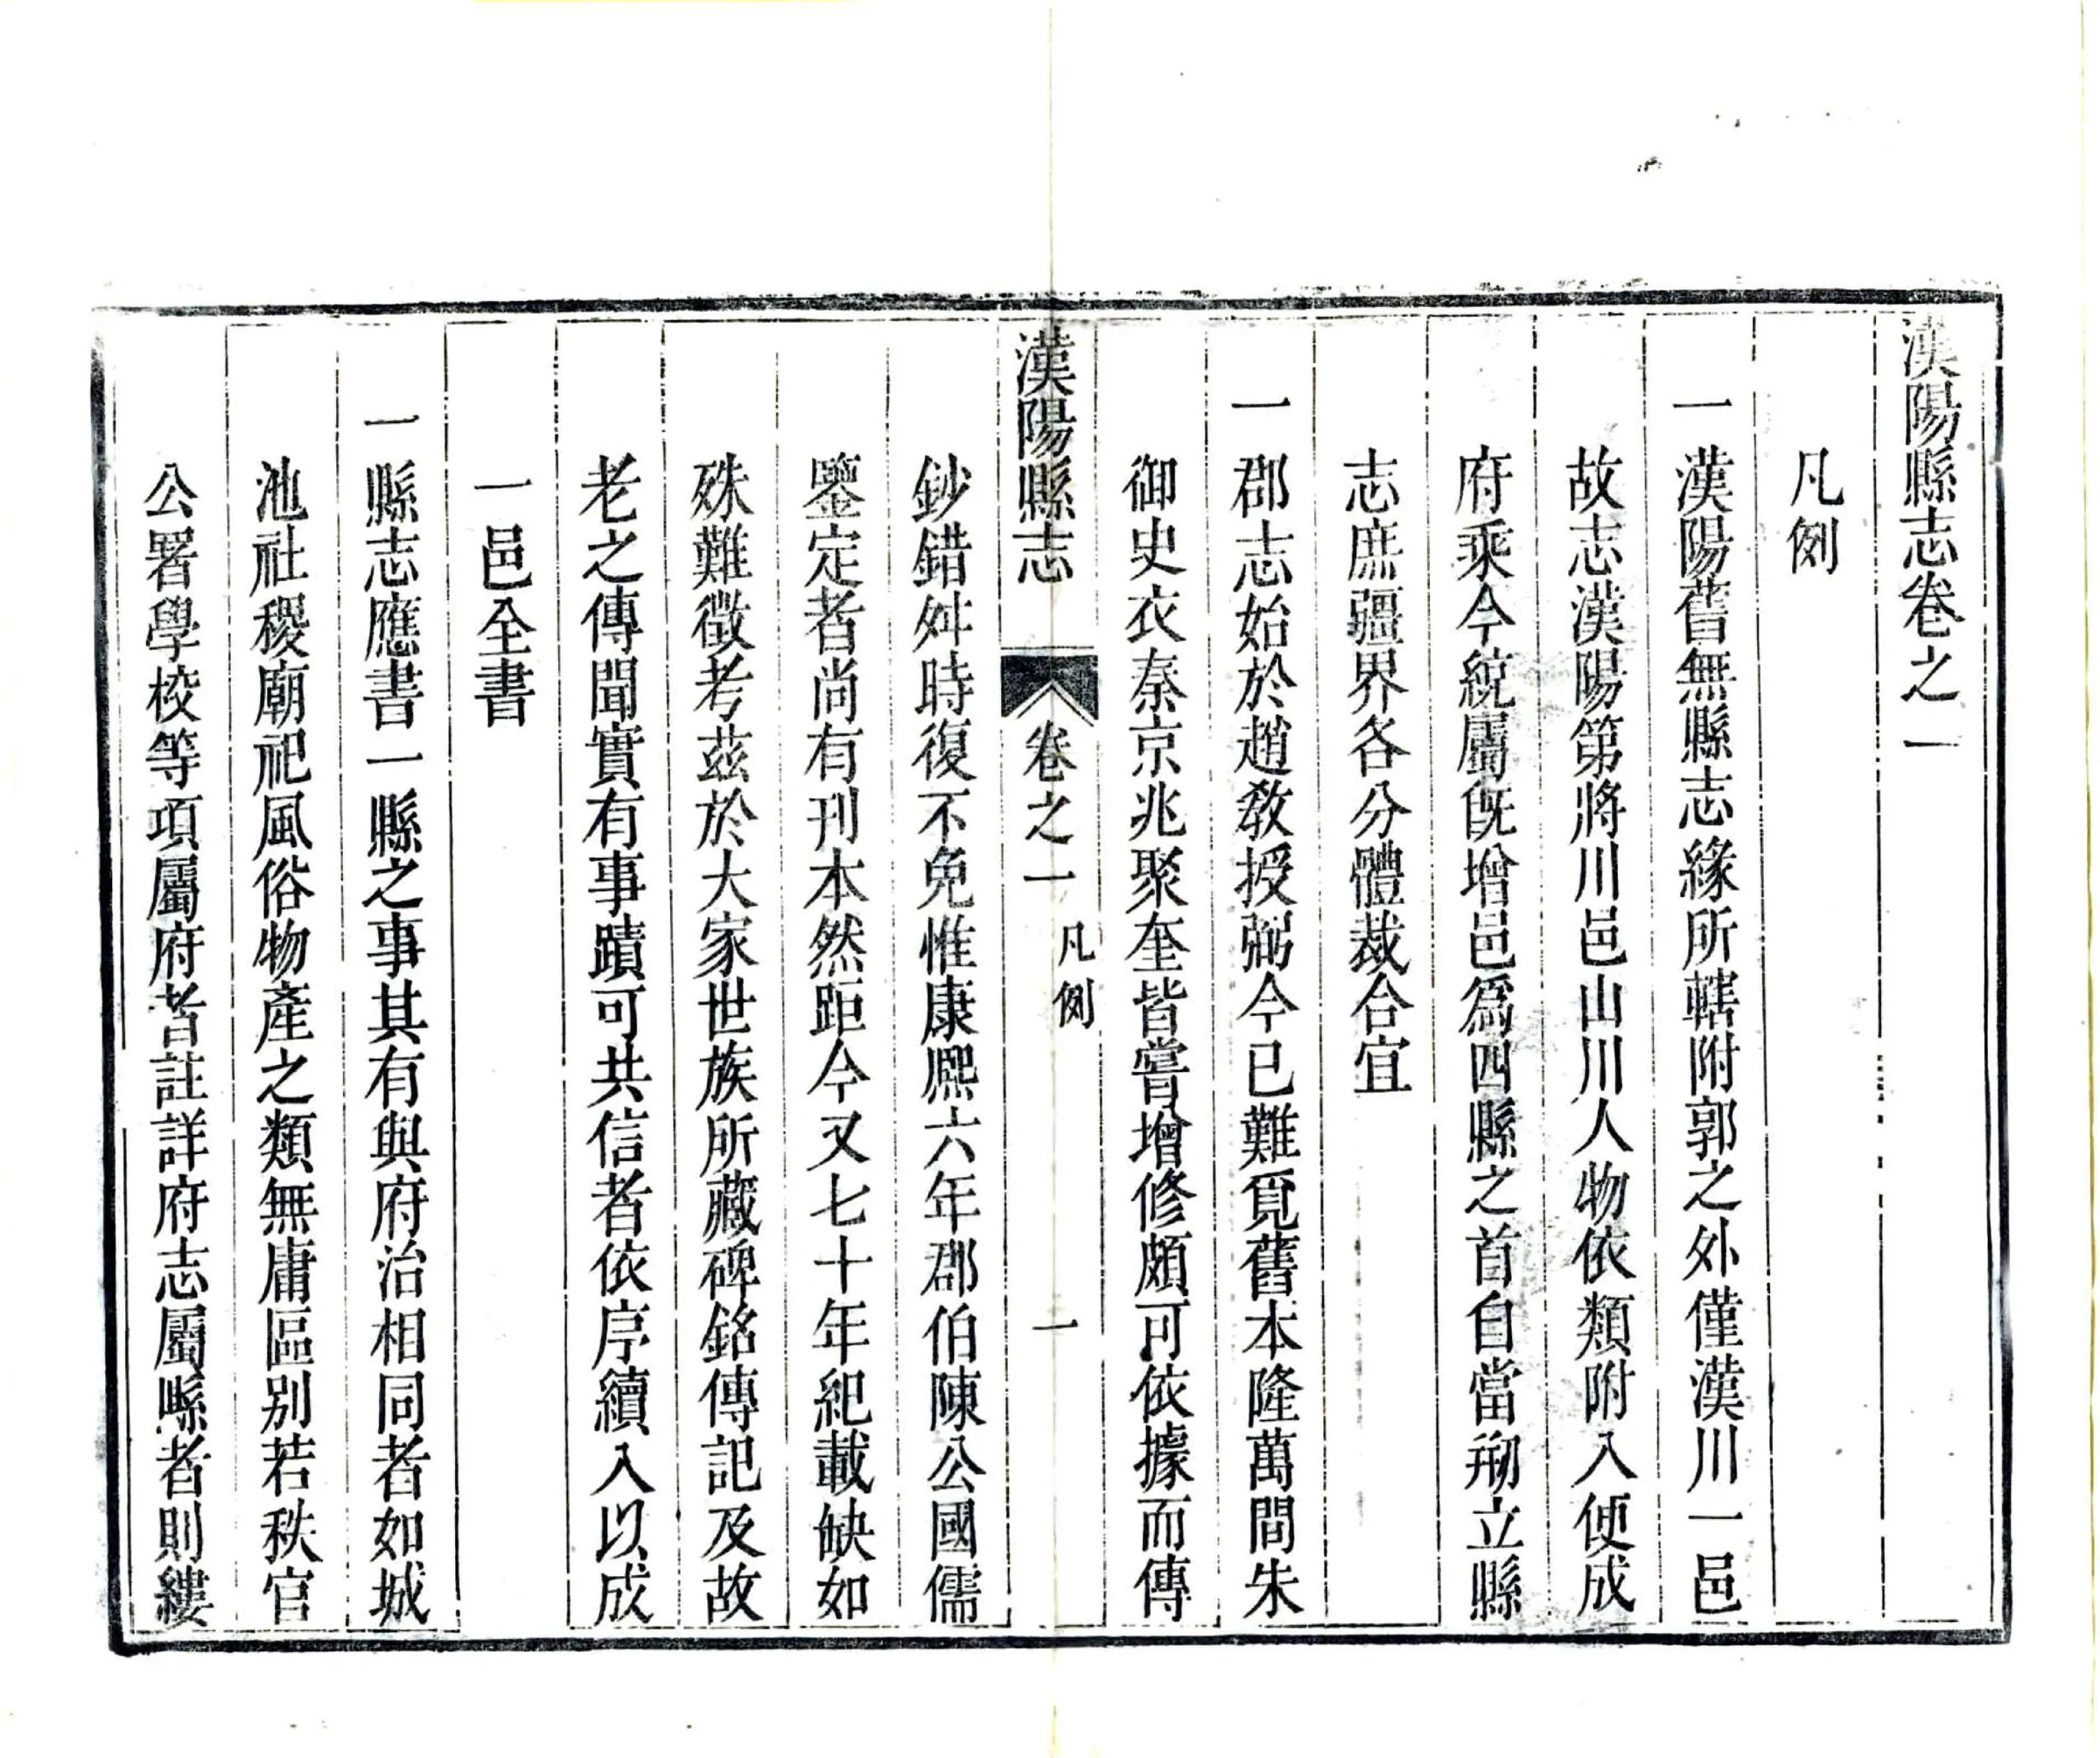 漢陽縣志卷之一
凡例
一漢陽舊無縣志緣所轄附郭之外僅漢川一邑
故志漢陽第將川邑山川人物依類附入便成
府乘今統屬旣增邑爲四縣之首自當刱立縣
志庶疆界各分體裁合宜
一郡志始於趙教授弼今已難覓舊本隆萬間朱
御史衣秦京兆聚奎皆嘗增修頗可依據而傳
漢陽縣志
卷之一
凡例
一
鈔錯舛時復不免惟康熈六年郡伯陳公國儒
鑒定者尚有刊本然距今又七十年紀載缺如
殊難徵考茲於大家世族所藏碑銘傳記及故
老之傳聞實有事蹟可共信者依序續入以成
一邑全書
一縣志應書一縣之事其有與府治相同者如城
池社稷廟祀風俗物產之類無庸區别若秩官
公署學校等項屬府者註詳府志屬縣者則縷